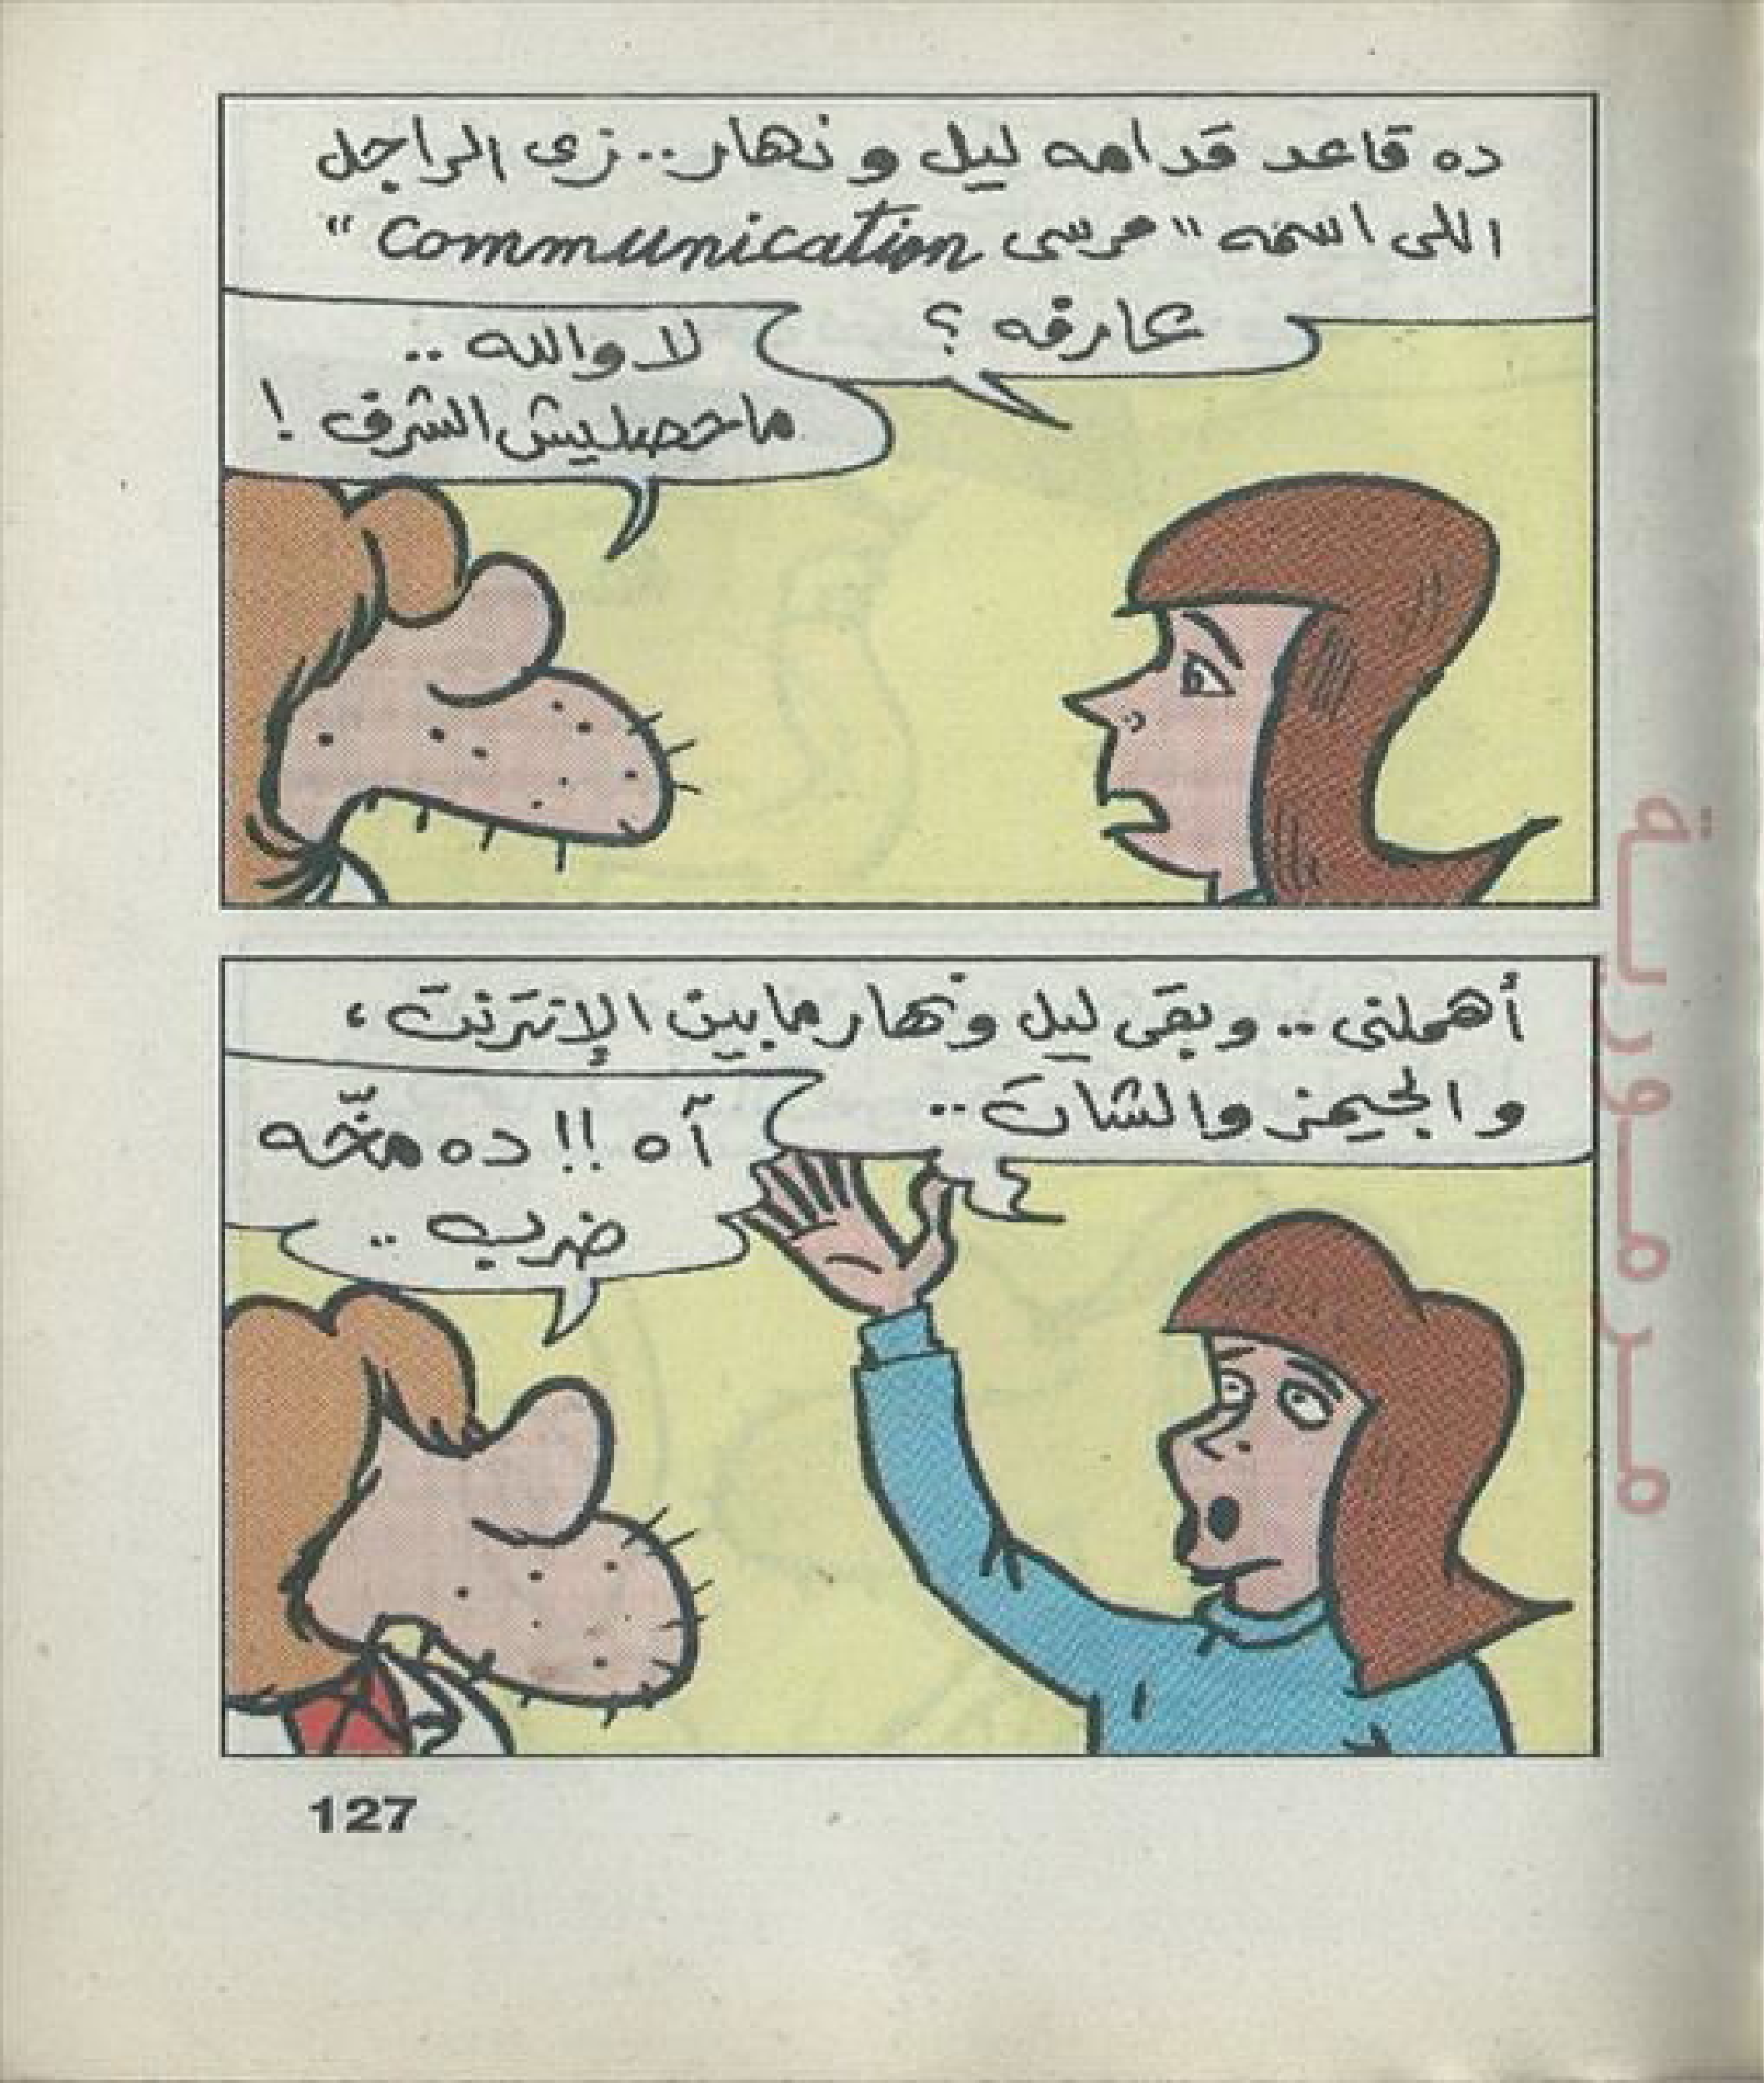 ده قاعد قدامه ليل و نهار.. زى الراجل
اللى اسمه "مرسى communication"
عارفه ؟
لا والله ..
ماحصليش الشرف !
أهملنى .. وبقى ليل ونهار مابين الإنترنت ،
والجيمز والشات ..
آه !! ده مخّه
ضرب ..
127
مرمورية